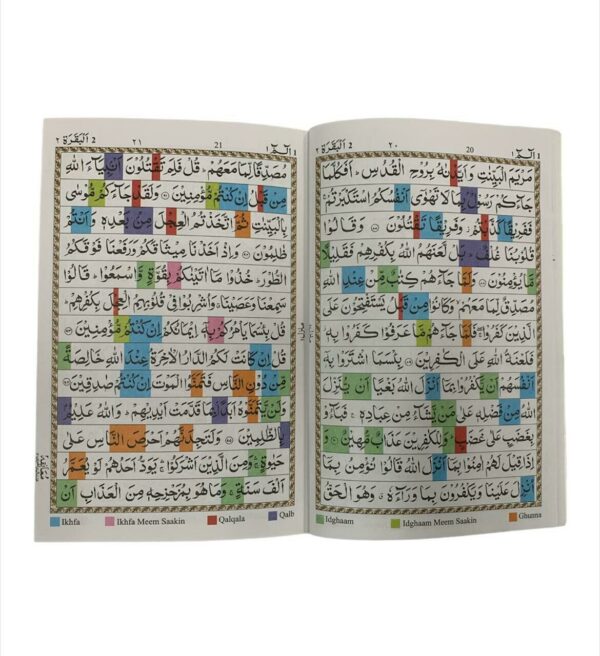 الٓمّٓ ١
20
٢٠
2 اَلْبَقَرَة ٢
مَرْيَمَ الْبَيِّنٰتِ وَاَيَّدْنٰهُ بِرُوْحِ الْقُدُسِ ؕ اَفَكُلَّمَا
جَآءَكُمْ رَسُوْلٌۢ بِمَا لَا تَهْوٰٓى اَنْفُسُكُمُ اسْتَكْبَرْتُمْ ۚ
فَفَرِيْقًا كَذَّبْتُمْ ؗ وَفَرِيْقًا تَقْتُلُوْنَ ۝ وَقَالُوْا
قُلُوْبُنَا غُلْفٌ ؕ بَلْ لَّعَنَهُمُ اللّٰهُ بِكُفْرِهِمْ فَقَلِيْلًا
مَّا يُؤْمِنُوْنَ ۝ وَلَمَّا جَآءَهُمْ كِتٰبٌ مِّنْ عِنْدِ اللّٰهِ
مُصَدِّقٌ لِّمَا مَعَهُمْ ۙ وَكَانُوْا مِنْ قَبْلُ يَسْتَفْتِحُوْنَ عَلَى
الَّذِيْنَ كَفَرُوْا ۚ فَلَمَّا جَآءَهُمْ مَّا عَرَفُوْا كَفَرُوْا بِهٖ ؗ
فَلَعْنَةُ اللّٰهِ عَلَى الْكٰفِرِيْنَ ۝ بِئْسَمَا اشْتَرَوْا بِهٖٓ
اَنْفُسَهُمْ اَنْ يَّكْفُرُوْا بِمَآ اَنْزَلَ اللّٰهُ بَغْيًا اَنْ يُّنَزِّلَ
اللّٰهُ مِنْ فَضْلِهٖ عَلٰى مَنْ يَّشَآءُ مِنْ عِبَادِهٖ ۚ فَبَآءُوْ
بِغَضَبٍ عَلٰى غَضَبٍ ؕ وَلِلْكٰفِرِيْنَ عَذَابٌ مُّهِيْنٌ ۝ وَ
اِذَا قِيْلَ لَهُمْ اٰمِنُوْا بِمَآ اَنْزَلَ اللّٰهُ قَالُوْا نُؤْمِنُ بِمَآ
اُنْزِلَ عَلَيْنَا وَيَكْفُرُوْنَ بِمَا وَرَآءَهٗ ۗ وَهُوَ الْحَقُّ
Idghaam
Idghaam Meem Saakin
Ghunna
الٓمّٓ ١
21
٢١
2 اَلْبَقَرَة ٢
مُصَدِّقًا لِّمَا مَعَهُمْ ؕ قُلْ فَلِمَ تَقْتُلُوْنَ اَنْۢبِيَآءَ اللّٰهِ
مِنْ قَبْلُ اِنْ كُنْتُمْ مُّؤْمِنِيْنَ ۝ وَلَقَدْ جَآءَكُمْ مُّوْسٰى
بِالْبَيِّنٰتِ ثُمَّ اتَّخَذْتُمُ الْعِجْلَ مِنْۢ بَعْدِهٖ وَاَنْتُمْ
ظٰلِمُوْنَ ۝ وَاِذْ اَخَذْنَا مِيْثَاقَكُمْ وَرَفَعْنَا فَوْقَكُمُ
الطُّوْرَ ؕ خُذُوْا مَآ اٰتَيْنٰكُمْ بِقُوَّةٍ وَّاسْمَعُوْا ؕ قَالُوْا
سَمِعْنَا وَعَصَيْنَا ۗ وَاُشْرِبُوْا فِيْ قُلُوْبِهِمُ الْعِجْلَ بِكُفْرِهِمْ ؕ
قُلْ بِئْسَمَا يَاْمُرُكُمْ بِهٖٓ اِيْمَانُكُمْ اِنْ كُنْتُمْ مُّؤْمِنِيْنَ ۝
قُلْ اِنْ كَانَتْ لَكُمُ الدَّارُ الْاٰخِرَةُ عِنْدَ اللّٰهِ خَالِصَةً
مِّنْ دُوْنِ النَّاسِ فَتَمَنَّوُا الْمَوْتَ اِنْ كُنْتُمْ صٰدِقِيْنَ ۝
وَلَنْ يَّتَمَنَّوْهُ اَبَدًاۢ بِمَا قَدَّمَتْ اَيْدِيْهِمْ ؕ وَاللّٰهُ عَلِيْمٌۢ
بِالظّٰلِمِيْنَ ۝ وَلَتَجِدَنَّهُمْ اَحْرَصَ النَّاسِ عَلٰى
حَيٰوةٍ ۚ وَمِنَ الَّذِيْنَ اَشْرَكُوْا ۚ يَوَدُّ اَحَدُهُمْ لَوْ يُعَمَّرُ
اَلْفَ سَنَةٍ ۚ وَمَا هُوَ بِمُزَحْزِحِهٖ مِنَ الْعَذَابِ اَنْ
Ikhfa
Ikhfa Meem Saakin
Qalqala
Qalb